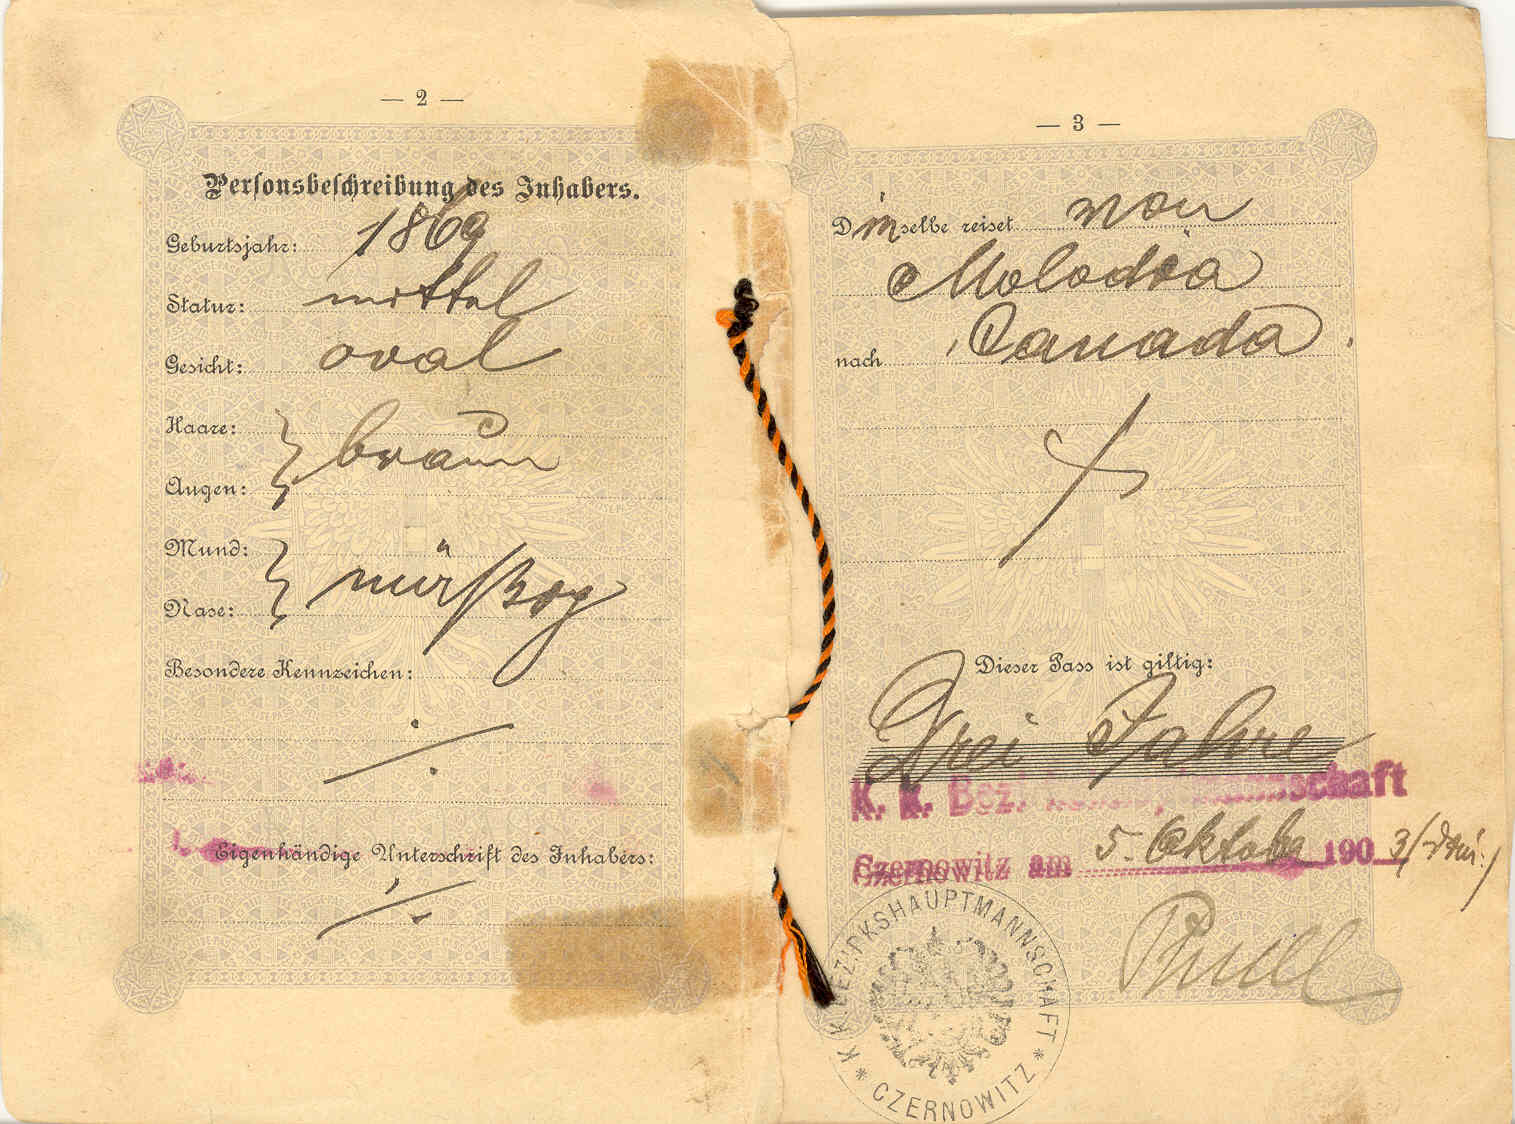 — 2 —
Personsbeschreibung des Inhabers.
Geburtsjahr: 1869
Statur: mittel
Gesicht: oval
Haare:
braun
Augen:
Mund:
Nase:
Besondere Kennzeichen:
./.
Eigenhändige Unterschrift des Inhabers:
./.
— 3 —
Dieselbe reiset von
Molodia
nach Canada
Dieser Pass ist giltig:
Drei Jahre
K. k. Bezirkshauptmannschaft
Czernowitz am 5. Oktober 1903
K. K. BEZIRKSHAUPTMANNSCHAFT
* CZERNOWITZ *